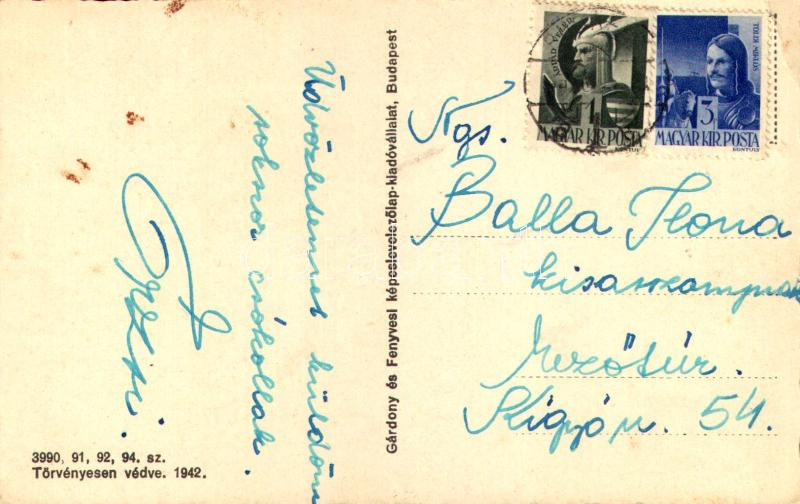 Üdvözletemet küldöm
sokszor csókollak.
3990, 91, 92, 94. sz.
Törvényesen védve. 1942.
Gárdony és Fenyvesi képeslevelezőlap-kiadóvállalat, Budapest
ÁRPÁD VEZÉR
1
MAGYAR KIR. POSTA
KONTULY
TOLDI MIKLÓS
3
MAGYAR KIR. POSTA
KONTULY
Ngs.
Balla Ilona
kisasszonynak
Mezőtúr.
Kigyó u. 54.